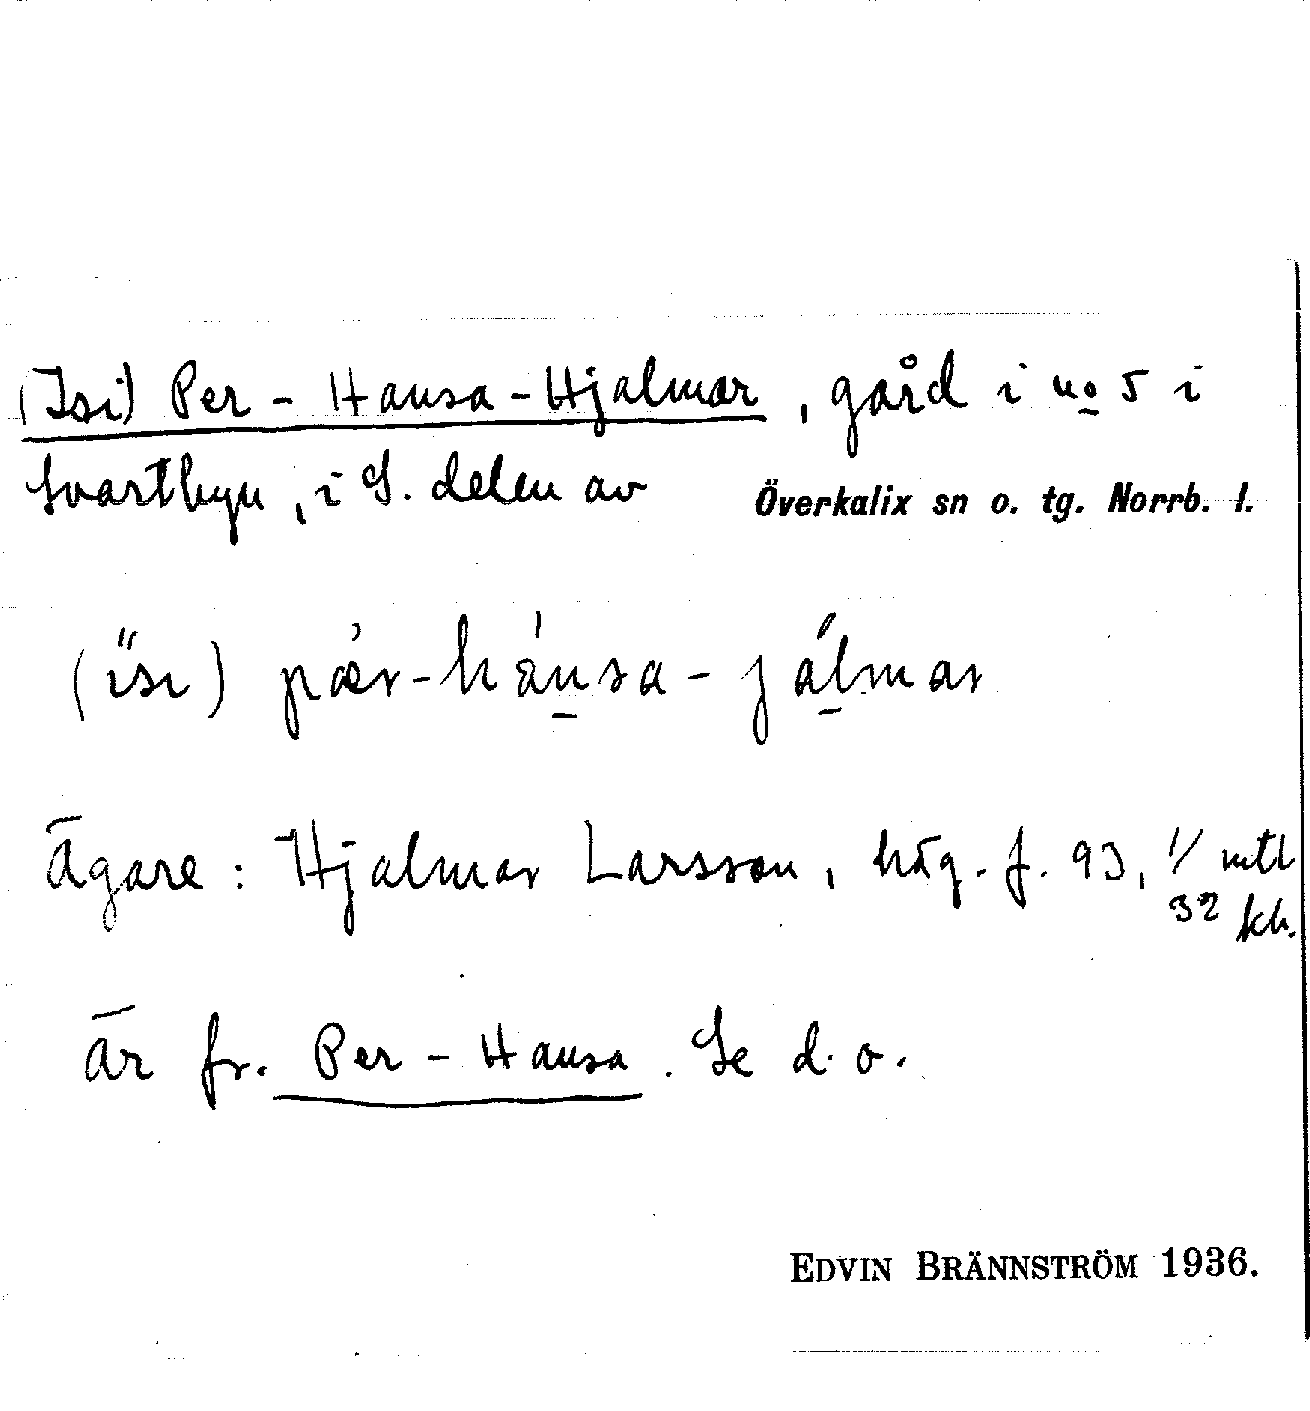 (Isi) Per-Hansa-Hjalmar, gård i no 5 i
Svartbyn, i S. delen av Överkalix sn o. tg. Norrb. l.
(i̋sı) pær-hánsa-jálmar
Ägare: Hjalmar Larsson, häg. f. 93, 1/32 mtl kh.
Är fr. Per-Hansa. Se d.o.
EDVIN BRÄNNSTRÖM 1936.